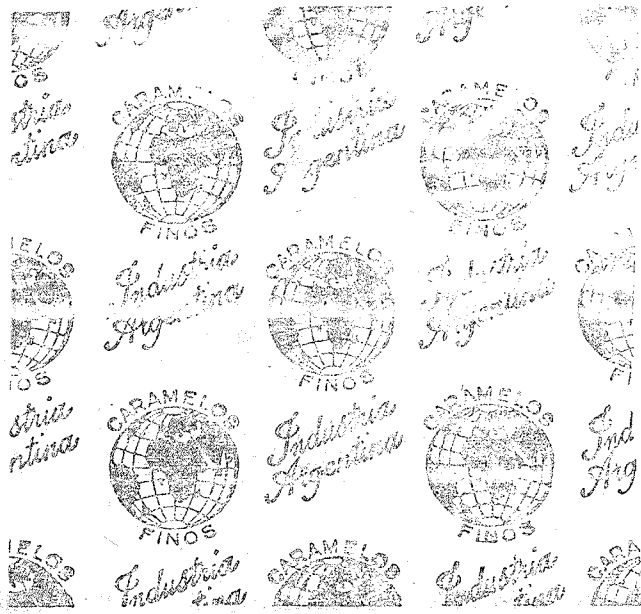 CARAMELOS
FINOS
Industria
Argentina
CARAMELOS
FINOS
Industria
Argentina
CARAMELOS
FINOS
Industria
Argentina
CARAMELOS
FINOS
Industria
Argentina
CARAMELOS
FINOS
Industria
CARAMELOS
Industria